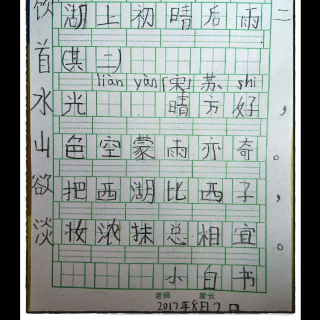 饮湖上初晴后雨二
首(其二)
liàn yàn [宋]苏 shi
水光 晴方好，
山色空蒙雨亦奇。
欲把西湖比西子，
淡妆浓抹总相宜。
小白书
老师 家长
2017年8月2日